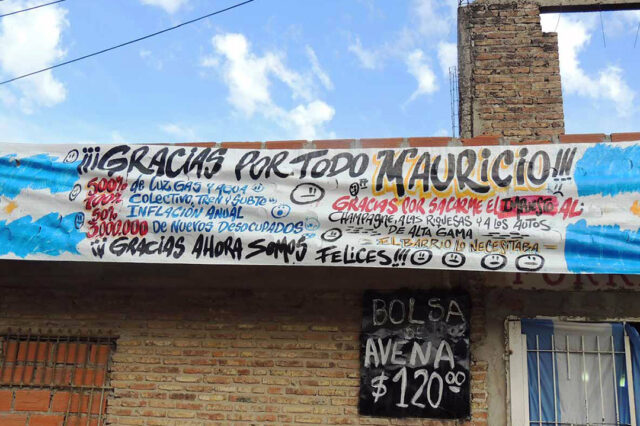 ¡¡¡GRACIAS POR TODO MAURICIO!!!
500% de LUZ GAS y AGUA
COLECTIVO, TREN Y SUBTE
50% INFLACIÓN ANUAL
3.000.000 DE NUEVOS DESOCUPADOS
GRACIAS POR SACARME EL IMPUESTO AL
CHAMPAGNE, A LAS RIQUESAS Y A LOS AUTOS
DE ALTA GAMA
EL BARRIO LO NECESITABA
¡¡¡GRACIAS AHORA SOMOS FELICES!!!
BOLSA
DE
AVENA
$120⁰⁰